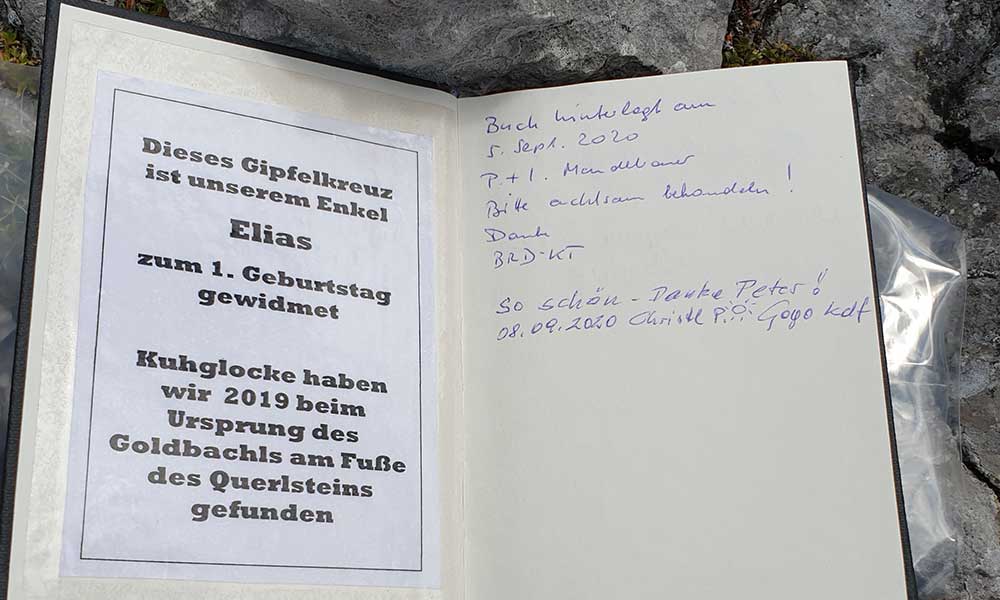 Dieses Gipfelkreuz
ist unserem Enkel
Elias
zum 1. Geburtstag
gewidmet
Kuhglocke haben
wir 2019 beim
Ursprung des
Goldbachls am Fuße
des Querlsteins
gefunden
Buch hinterlegt am
5. Sept. 2020
P. + I. Mandlbauer
Bitte achtsam behandeln!
Danke
BRD-KT
So schön - Danke Peter!
08.09.2020 Christl P. Gogo Kdf